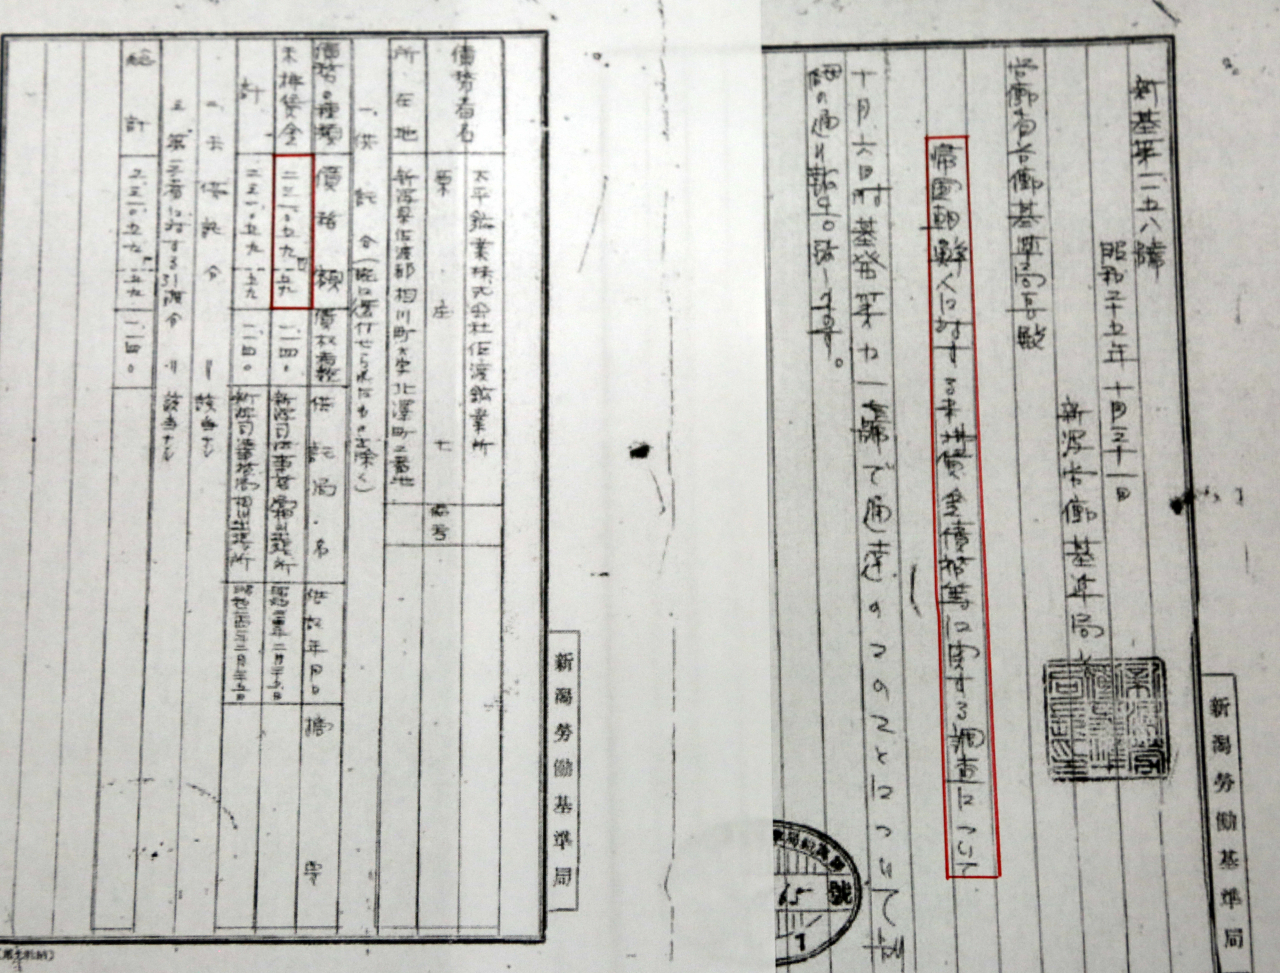 新基第一二五八號
昭和二十五年十月三十一日
新潟労働基準局長
労働省労働基準局長殿
帰国朝鮮人に対する未払賃金債務等に関する調査について
十月六日附基発第九一八號で通達のこのことについて
別紙の通り報告
新潟労働基準局
債務者名
太平鉱業株式会社佐渡鉱業所
栗庄七
備考
所在地
新潟県佐渡郡相川町大字北沢町二番地
一、供託分(既に還付せられたものを除く)
債務の種類
債務額
債权者数
供託局名
供託年月日
摘要
未拂賃金
二三一、〇五九、五九
一、一四〇
新潟司法事務局相川出張所
計
二三一、〇五九、五九
一、一四〇
二、未供託分 〃 該当ナシ
三、第三者に対する引渡分 〃 該当ナシ
総計
二三一、〇五九、五九
一、一四〇
新潟勞働基準局